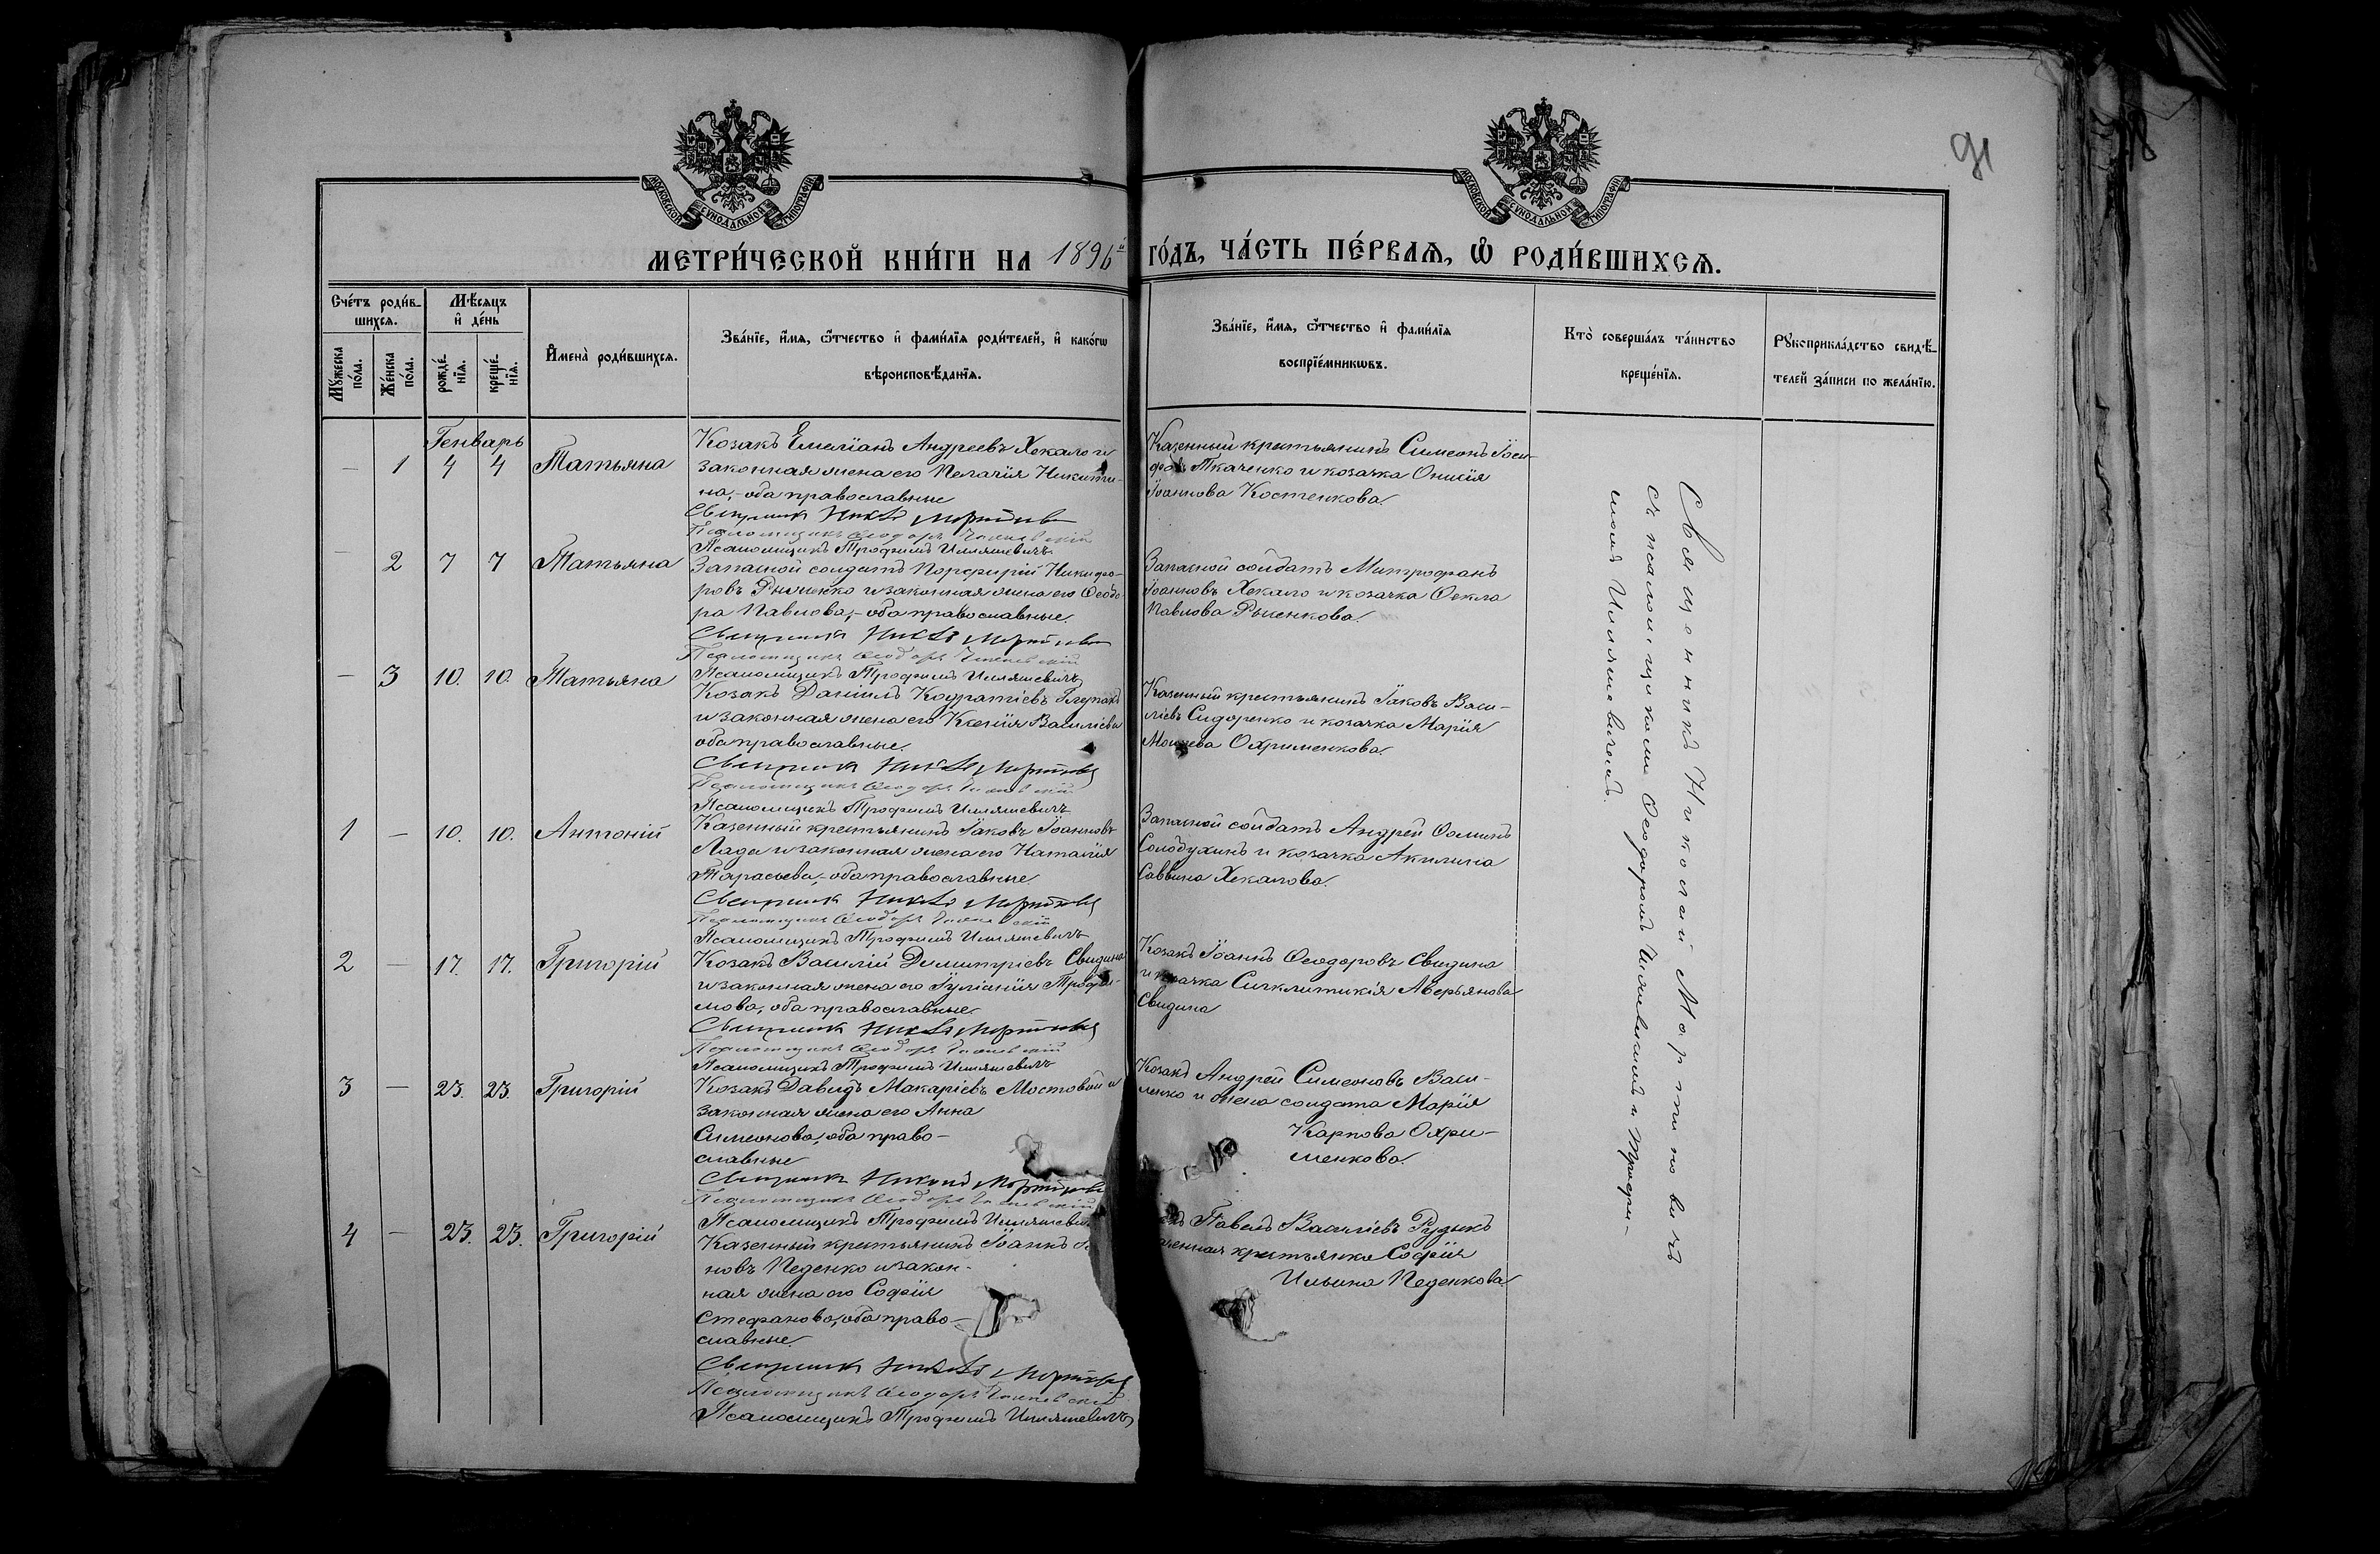 91
МОСКОВСКОЙ СѴНОДАЛЬНОЙ ТИПОГРАФІИ
МОСКОВСКОЙ СѴНОДАЛЬНОЙ ТИПОГРАФІИ
МЕТРИ́ЧЕСКОЙ КНИ́ГИ НА 1896й ГО́ДЪ, ЧА́СТЬ ПЕ́РВАѦ, Ѡ РОДИ́ВШИХСѦ.
Сче́тъ роди́в-
шихсѧ.
Мꙋжеска по́ла.
Же́нска по́ла.
Мѣ́сѧцъ
и҆ де́нь
рожде́-
нїѧ.
креще́-
нїѧ.
И҆мена̀ роди́вшихсѧ.
Зва́нїе, и҆́мѧ, ѻ҆́тчество и҆ фами́лїѧ роди́телей, и҆ како́гѡ
вѣроисповѣ́данїѧ.
Зва́нїе, и҆́мѧ, ѻ҆́тчество и҆ фами́лїѧ
воспрїе́мникѡвъ.
Кто̀ соверша́лъ та́инство
креще́нїѧ.
Рꙋкоприкла́дство свидѣ́-
телей за́писи по жела́нїю.
Генварь
— 1 4 4 Татьяна
Козакъ Емеліанъ Андреевъ Хекало и
законная жена его Пелагія Никити-
на, - оба православные
Священникъ Николай Мартиновъ
Псаломщикъ Ѳеодоръ
Псаломщикъ Трофимъ Илляшевичъ
Казенный крестьянинъ Симеонъ Іоси-
фовъ Ткаченко и козачка Онисія
Іоаннова Костенкова.
— 2 7 7 Татьяна
Запасной солдатъ Порфирій Никифо-
ровъ Рыженко и законная жена его Ѳеодо-
ра Павлова, - оба православные.
Священникъ Николай Мартиновъ
Псаломщикъ Ѳеодоръ
Псаломщикъ Трофимъ Илляшевичъ
Запасной солдатъ Митрофанъ
Іоанновъ Хекало и козачка Ѳекла
Павлова Рыженкова.
— 3 10. 10. Татьяна
Козакъ Даніилъ Кодратіевъ
и законная жена его Ксенія Василіева
оба православные.
Священникъ Николай Мартиновъ
Псаломщикъ Ѳеодоръ
Псаломщикъ Трофимъ Илляшевичъ
Казенный крестьянинъ Іаковъ Васи-
ліевъ Сидоренко и козачка Марія
Моисеева Охрименкова.
1 — 10. 10. Антоній
Казенный крестьянинъ Іаковъ Іоанновъ
Лада и законная жена его Наталія
Тарасьева, - оба православные
Священникъ Николай Мартиновъ
Псаломщикъ Ѳеодоръ
Псаломщикъ Трофимъ Илляшевичъ
Запасной солдатъ Андрей Ѳоминъ
Солодухинъ и козачка Акилина
Саввина Хекалова.
2 — 17. 17. Григорій
Козакъ Василій Димитріевъ Свидина
и законная жена его Іуліанія Трофи-
мова, оба православные
Священникъ Николай Мартиновъ
Псаломщикъ Ѳеодоръ
Псаломщикъ Трофимъ Илляшевичъ
Козакъ Іоаннъ Ѳеодоровъ Свидина
и козачка Сигклитикія Аверьянова
Свидина
3 — 23. 23. Григорій
Козакъ Давидъ Макаріевъ Мостовый и
законная жена его Анна
Симеонова, оба право-
славные
Священникъ Николай Мартиновъ
Псаломщикъ Ѳеодоръ
Псаломщикъ Трофимъ Илляшевичъ
Козакъ Андрей Симеоновъ Васи-
ленко и жена солдата Марія
Карпова Охри-
менкова.
4 — 23. 23. Григорій
Казенный крестьянинъ Іоаннъ
новъ Педенко и закон-
ная жена его Софія
Стефанова, оба право-
славные.
Священникъ Николай Мартиновъ
Псаломщикъ Ѳеодоръ
Псаломщикъ Трофимъ Илляшевичъ
Павелъ Василіевъ Рудыкъ
крестьянка Софія
Ильина Педенкова
Священникъ Николай Мартиновичъ
съ псаломщиками Ѳеодоромъ и Трофи-
момъ Илляшевичемъ.